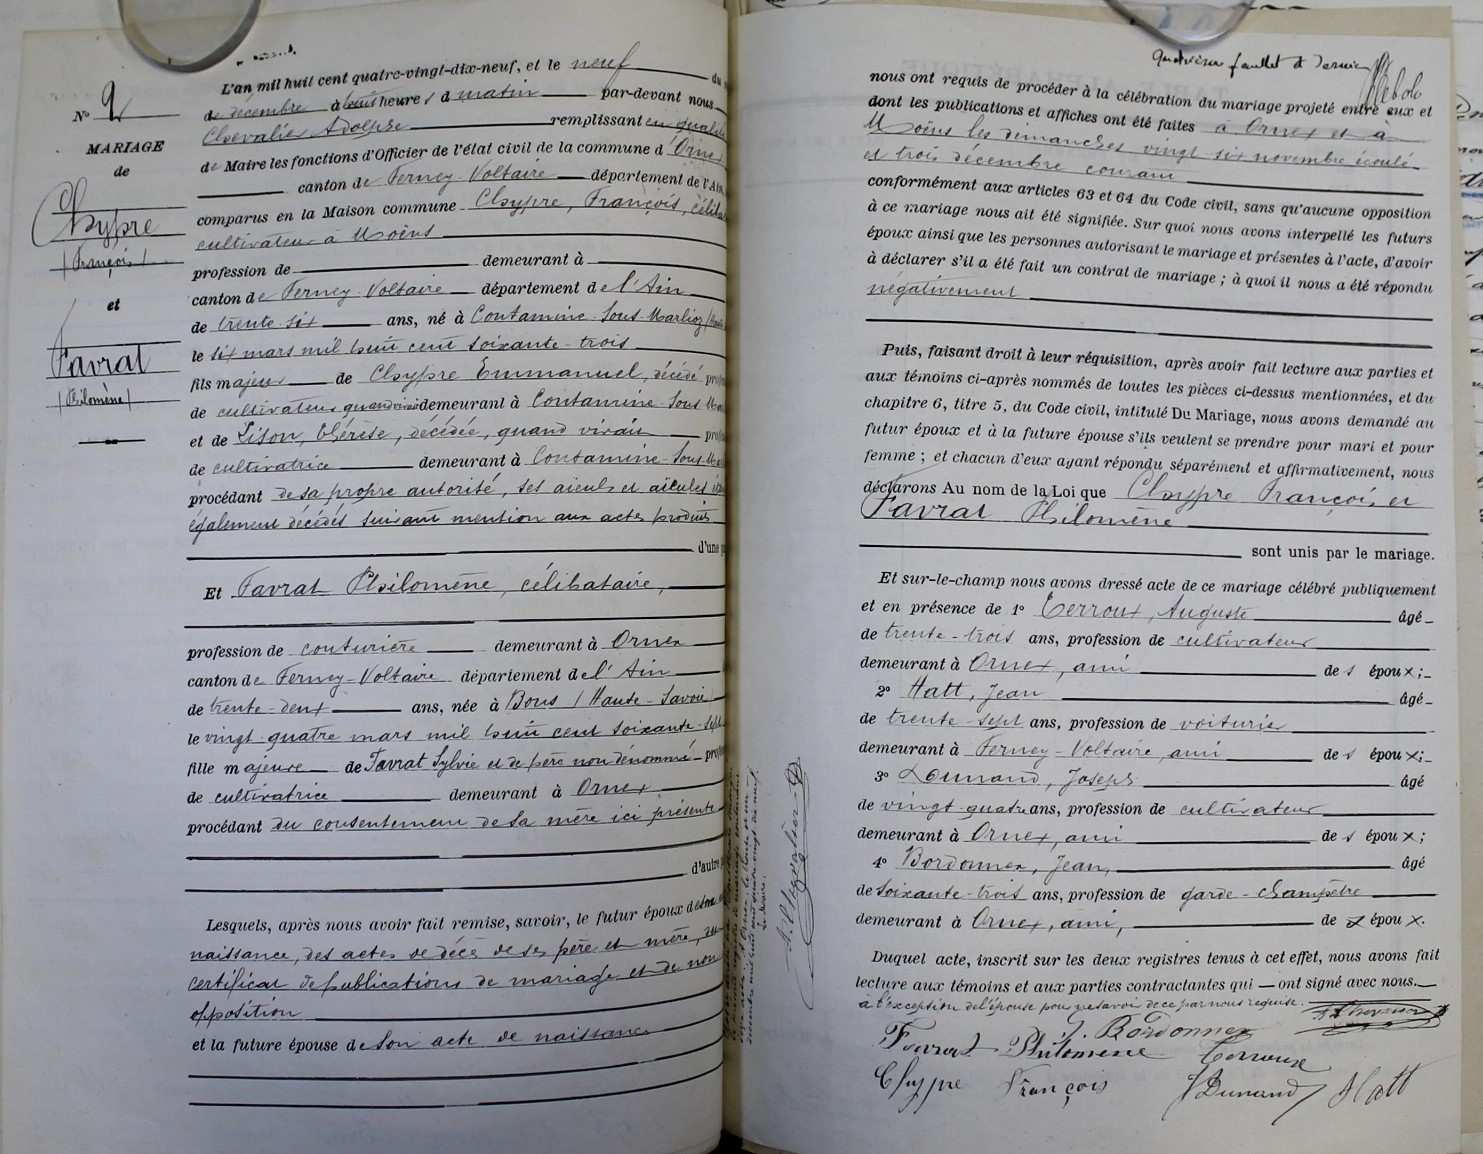 Nº 9
MARIAGE
de
Chypre
(François)
et
Favrat
(Philomène)
L'an mil huit cent quatre-vingt-dix-neuf, et le neuf du
de décembre à huit heures d matin par-devant nous
Chevalier Adolphe remplissant en qualité
de Maire les fonctions d'Officier de l'état civil de la commune d'Ornex
canton de Ferney-Voltaire département de l'Ain,
comparus en la Maison commune Chypre, François, céliba
cultivateur à Moëns
profession de demeurant à
canton de Ferney-Voltaire département de l'Ain
de trente-six ans, né à Contamine-Sous-Marlioz
le six mars mil huit cent soixante-trois
fils majeur de Chypre Emmanuel, décédé
de cultivateur quand vivait demeurant à Contamine-Sous
et de Lison, Thérèse, décédée, quand vivait
de cultivatrice demeurant à Contamine-Sous
procédant de sa propre autorité, ses aïeuls et aïeules
également décédés suivant mention aux actes produits
d'une
Et Favrat Philomène, célibataire,
profession de couturière demeurant à Ornex
canton de Ferney-Voltaire département de l'Ain
de trente-deux ans, née à Bons (Haute-Savoie
le vingt-quatre mars mil huit cent soixante-sept
fille majeure de Favrat Sylvie et de père non dénommé
de cultivatrice demeurant à Ornex
procédant du consentement de sa mère ici présente
d'autre
Lesquels, après nous avoir fait remise, savoir, le futur époux de son
naissance, des actes de décès de ses père et mère, du
certificat de publications de mariage et de non
opposition
et la future épouse de son acte de naissance
A. Chevalier
quatrième feuillet et dernier
nous ont requis de procéder à la célébration du mariage projeté entre eux et
dont les publications et affiches ont été faites à Ornex et à
Moëns les dimanches vingt-six novembre écoulé
et trois décembre courant
conformément aux articles 63 et 64 du Code civil, sans qu'aucune opposition
à ce mariage nous ait été signifiée. Sur quoi nous avons interpellé les futurs
époux ainsi que les personnes autorisant le mariage et présentes à l'acte, d'avoir
à déclarer s'il a été fait un contrat de mariage ; à quoi il nous a été répondu
négativement
Puis, faisant droit à leur réquisition, après avoir fait lecture aux parties et
aux témoins ci-après nommés de toutes les pièces ci-dessus mentionnées, et du
chapitre 6, titre 5, du Code civil, intitulé Du Mariage, nous avons demandé au
futur époux et à la future épouse s'ils veulent se prendre pour mari et pour
femme ; et chacun d'eux ayant répondu séparément et affirmativement, nous
déclarons Au nom de la Loi que Chypre François et
Favrat Philomène
sont unis par le mariage.
Et sur-le-champ nous avons dressé acte de ce mariage célébré publiquement
et en présence de 1º Terroux, Auguste âgé
de trente-trois ans, profession de cultivateur
demeurant à Ornex, ami des époux ;
2º Hatt, Jean âgé
de trente-sept ans, profession de voiturier
demeurant à Ferney-Voltaire, ami des époux ;
3º Dunand, Joseph âgé
de vingt-quatre ans, profession de cultivateur
demeurant à Ornex, ami des époux ;
4º Bordonnex, Jean, âgé
de soixante-trois ans, profession de garde-champêtre
demeurant à Ornex, ami, des époux.
Duquel acte, inscrit sur les deux registres tenus à cet effet, nous avons fait
lecture aux témoins et aux parties contractantes qui ont signé avec nous.
à l'exception de l'épouse pour ne savoir de ce par nous requise.
J. Bordonnex
Favrat Philomene Terroux
Chypre François J Dunand Hatt